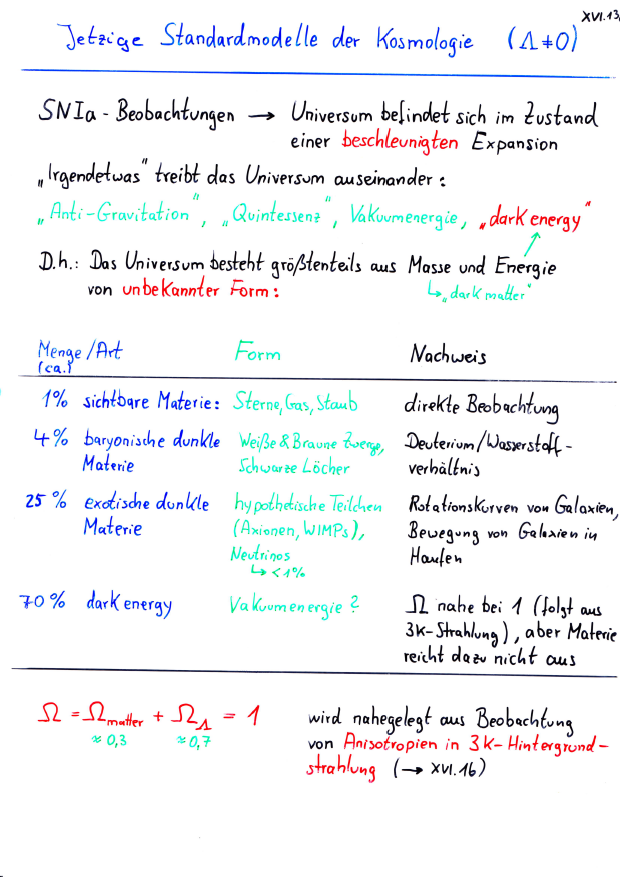 XVI.13
Jetzige Standardmodelle der Kosmologie (Λ≠0)
SNIa - Beobachtungen → Universum befindet sich im Zustand
einer beschleunigten Expansion
„Irgendetwas" treibt das Universum auseinander:
„Anti-Gravitation", „Quintessenz", Vakuumenergie, „dark energy"
D.h.: Das Universum besteht größtenteils aus Masse und Energie
von unbekannter Form: ↳„dark matter"
Menge/Art Form Nachweis
(ca.)
1% sichtbare Materie: Sterne, Gas, Staub direkte Beobachtung
4% baryonische dunkle Weiße & Braune Zwerge, Deuterium/Wasserstoff-
Materie Schwarze Löcher verhältnis
25% exotische dunkle hypothetische Teilchen Rotationskurven von Galaxien,
Materie (Axionen, WIMPs), Bewegung von Galaxien in
Neutrinos Haufen
↳ <1%
70% dark energy Vakuumenergie? Ω nahe bei 1 (folgt aus
3K-Strahlung), aber Materie
reicht dazu nicht aus
Ω = Ωmatter + ΩΛ = 1 wird nahegelegt aus Beobachtung
≈0,3 ≈0,7 von Anisotropien in 3K-Hintergrund-
strahlung (→ XVI.16)